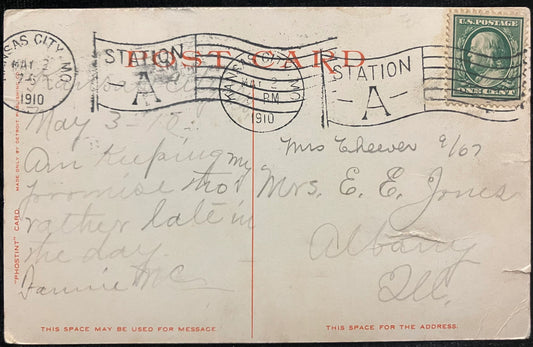 POST CARD
KANSAS CITY, MO.
MAY 2
1910
STATION
A
KANSAS CITY MO.
MAY 2
PM
1910
STATION
-A-
U.S. POSTAGE
ONE CENT
Kansas City
May 3-10.
Am keeping my
promise tho'
rather late in
the day.
Fannie Mc
Mrs Cheever 9/07
Mrs. E. E. Jones
Albany
Ill.
"PHOSTINT" CARD
MADE ONLY BY DETROIT PUBLISHING
THIS SPACE MAY BE USED FOR MESSAGE
THIS SPACE IS FOR THE ADDRESS.